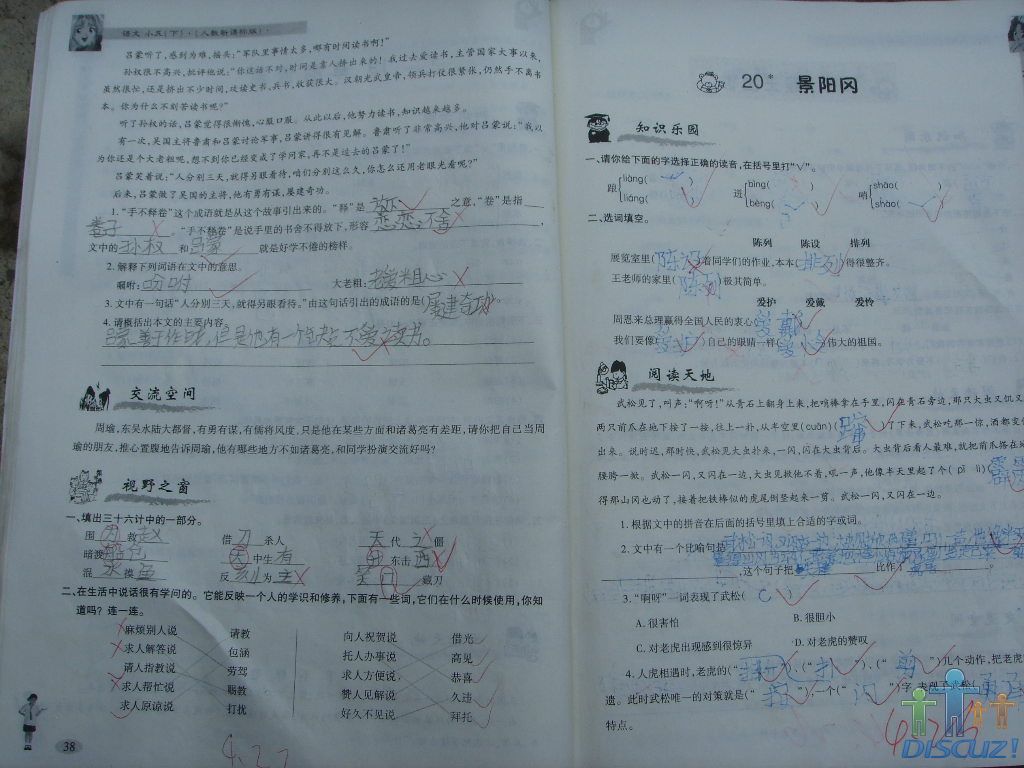 语文 小五(下)·(人教新课标版)·
吕蒙听了,感到为难,摇头:“军队里事情太多,哪有时间读书啊!”
孙权很不高兴,批评他说:“你这话不对,时间是靠人挤出来的!我过去爱读书,主管国家大事以来,
虽然很忙,还是挤出不少时间,攻读史书、兵书,收获很大。汉朝光武皇帝,领兵打仗很紧张,仍然手不离书
本。你为什么不刻苦读书呢?”
听了孙权的话,吕蒙觉得很惭愧,心服口服。从此以后,他努力读书,知识越来越多。
有一次,吴国主将鲁肃和吕蒙讨论军事,吕蒙讲得很有见解。鲁肃听了非常高兴,他对吕蒙说:“我以
为你还是个大老粗呢,想不到你已经变成了学问家,再不是过去的吕蒙了!”
吕蒙笑着说:“人分别三天,就得另眼看待,咱们分别这么久,你怎么还用老眼光看呢?”
后来,吕蒙做了吴国的主将,他有勇有谋,屡建奇功。
1.“手不释卷”这个成语就是从这个故事引出来的。“释”是 放下 之意,“卷”是指
卷子 。“手不释卷”是说手里的书舍不得放下,形容 恋恋不舍 ,
文中的 孙权 和 吕蒙 就是好学不倦的榜样。
2.解释下列词语在文中的意思。
嘱咐: 吩咐 大老粗:
3.文中有一句话“人分别三天,就得另眼看待。”由这句话引出的成语的是(屡建奇功)。
4.请概括出本文的主要内容。
吕蒙善于作战,但是他有一个缺 不爱读书。
交流空间
周瑜,东吴水陆大都督,有勇有谋,有儒将风度,只是他在某些方面和诸葛亮有差距,请你把自己当周
瑜的朋友,推心置腹地告诉周瑜,他有哪些地方不如诸葛亮,和同学扮演交流好吗?
视野之窗
一、填出三十六计中的一部分。
围 为 救 赵 借 刀 杀人 代 僵
暗渡 无 中生 有 声 东击 西
混 水 摸 鱼 反 为 主 笑 藏刀
二、在生活中说话很有学问的。它能反映一个人的学识和修养,下面有一些词,它们在什么时候使用,你知
道吗?连一连。
麻烦别人说 请教 向人祝贺说 借光
求人解答说 包涵 托人办事说 高见
请人指教说 劳驾 求人方便说 恭喜
求人帮忙说 赐教 赞人见解说 久违
求人原谅说 打扰 好久不见说 拜托
38
4.22
20* 景阳冈
知识乐园
一、请你给下面的字选择正确的读音,在括号里打“√”。
踉 liàng( ) 迸 bìng( ) 哨 shào( )
liáng( ) bèng( ) shāo( )
二、选词填空。
陈列 陈设 排列
展览室里(陈设)着同学们的作业,本本(排列)得很整齐。
王老师的家里(陈列)极其简单。
爱护 爱戴 爱怜
周恩来总理赢得全国人民的衷心(爱戴)。
我们要像( )自己的眼睛一样( )伟大的祖国。
阅读天地
武松见了,叫声:“啊呀!”从青石上翻身上来,把哨棒拿在手里,闪在青石旁边,那只大虫又饥又
两只前爪在地下按了一按,往上一扑,从半空里(cuān)( )了下来,武松吃那一惊,酒都变
出来。说时迟,那时快,武松见大虫扑来,一闪,闪在大虫背后。大虫背后看人最难,就把前爪搭在地
腰胯一掀。武松一闪,又闪在一边,大虫见掀他不着,吼一声,他像半天里起了个( pī lì )
得那山冈也动了,接着把铁棒似的虎尾倒竖起来一剪。武松一闪,又闪在一边。
1.根据文中的拼音在后面的括号里填上合适的字或词。
2.文中有一个比喻句括
,这个句子把 比作了 。
3.“啊呀”一词表现了武松( C )
A.很害怕 B.很胆小
C.对老虎出现感到很惊异 D.对老虎的赞叹
4.人虎相遇时,老虎的(“ ”)、(“ 扑 ”)、(“ 剪 ”)几个动作,把老虎
遗。此时武松唯一的对策就是(“ ”),一个(“ 闪 ”)字
特点。
DISCUZ!